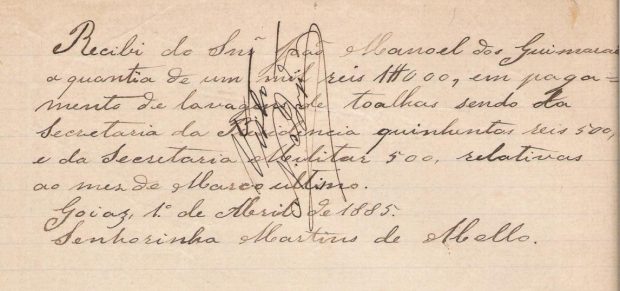 Recibi do Snr. João Manoel dos Guimarães
a quantia de um mil reis 1#000, em paga-
mento de lavagem de toalhas sendo da
Secretaria da Presidencia quinhentos reis 500,
e da Secretaria Militar 500, relativas
ao mez de Março ultimo.
Goiaz, 1º de Abril de 1885.
Senhorinha Martins de Mello.